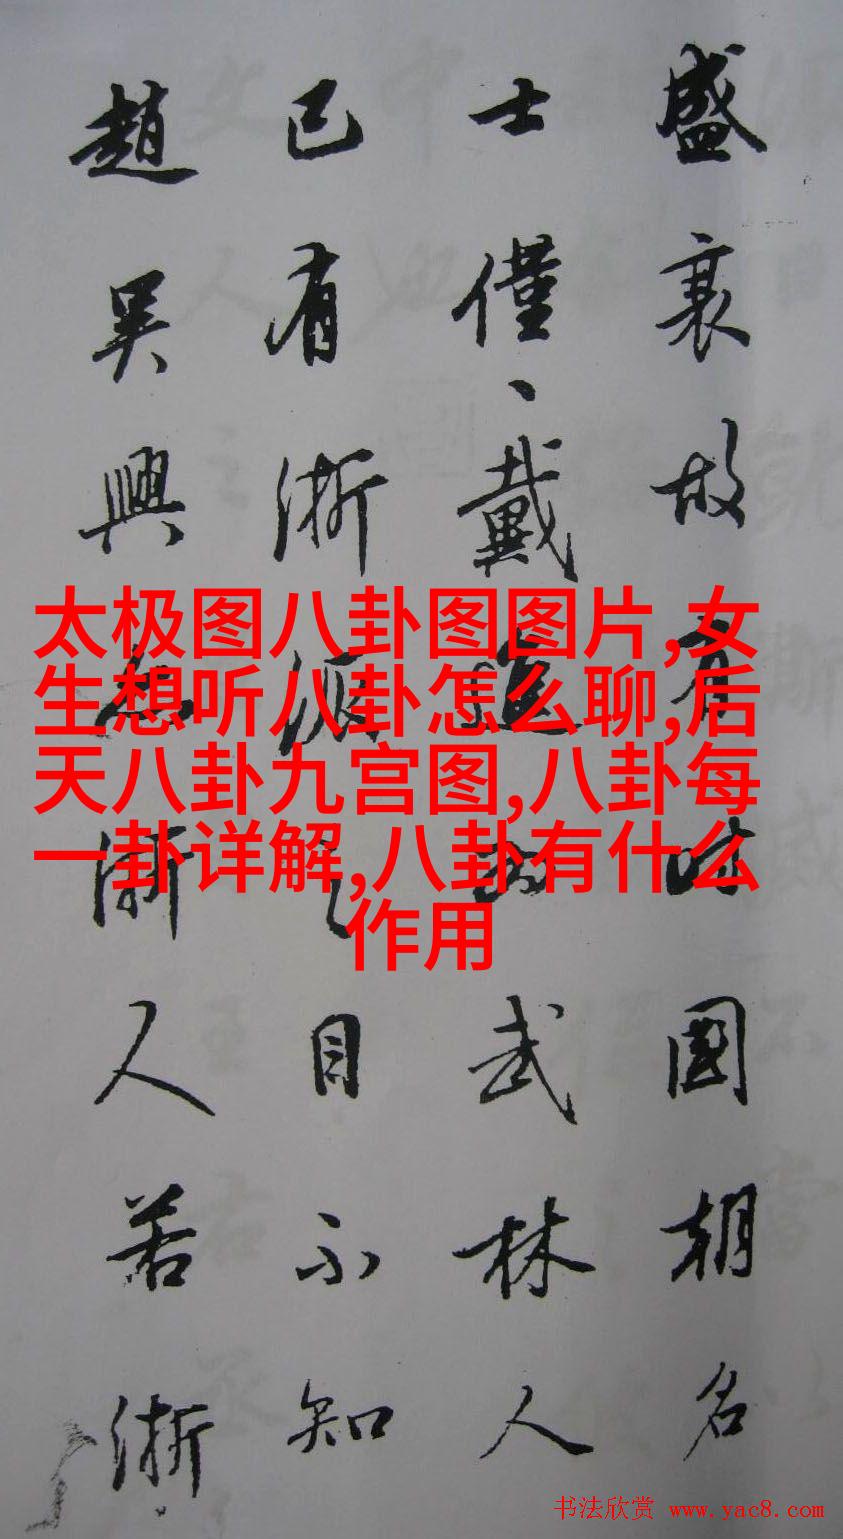 盛衰故有時國朝名
士僅、戴進為武林人
已有浙派之目不知
趙吳興亦浙人若浙
太极图八卦图图片,女
生想听八卦怎么聊,后
天八卦九宫图,八卦每
一卦详解,八卦有什么
作用
书法欣赏 www.yac8.com